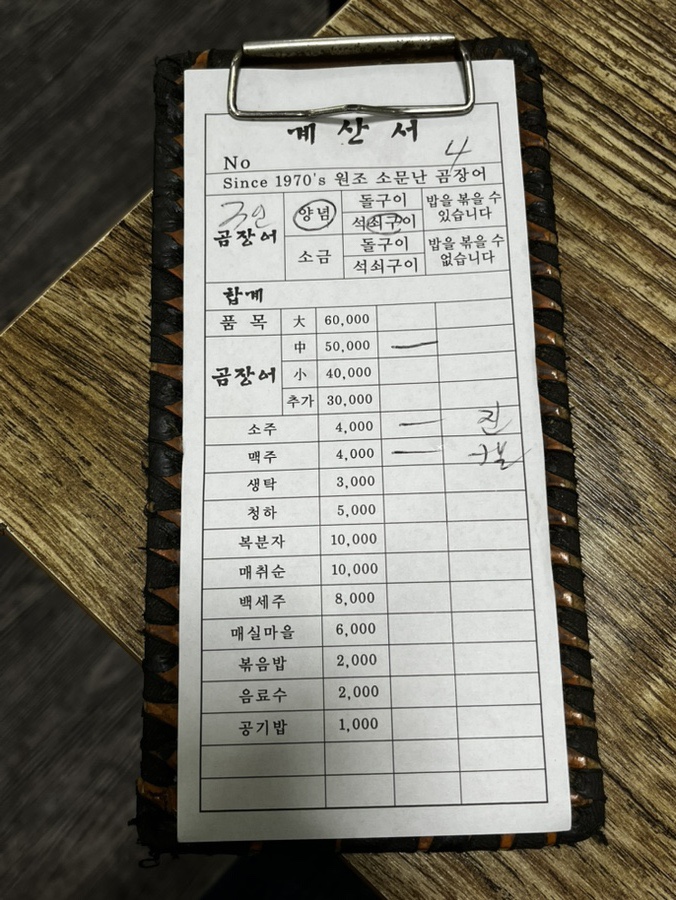 계산서
No 4
Since 1970's 원조 소문난 곰장어
3인 곰장어 양념 돌구이 밥을 볶을 수 있습니다
석쇠구이
소금 돌구이 밥을 볶을 수 없습니다
석쇠구이
합계
품 목 大 60,000
곰장어 中 50,000 一
小 40,000
추가 30,000
소주 4,000 一 진
맥주 4,000 一
생탁 3,000
청하 5,000
복분자 10,000
매취순 10,000
백세주 8,000
매실마을 6,000
볶음밥 2,000
음료수 2,000
공기밥 1,000